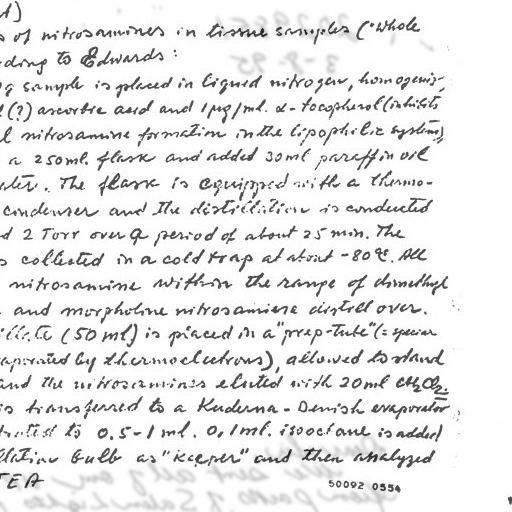 s of nitrosamines in tissue samples ("whole
ding to Edwards:
g sample is placed in liquid nitrogen, homogenis,
(?) ascorbic acid and 1µg/ml. α-tocopherol (inhibits
l nitrosamine formation in the lipophilic system),
a 250ml. flask and added 30ml paraffin oil
ater. The flask is equipped with a thermo-
condenser and the distillation is conducted
d 2 Torr over a period of about 25 min. The
s collected in a cold trap at about -80°C. All
nitrosamine within the range of dimethyl
and morpholine nitrosamine distill over.
illate (50 ml) is placed in a "prep-tube" (= special
aporated by thermoelectrons), allowed to stand
and the nitrosamines eluted with 20ml CH2Cl2.
is transferred to a Kuderna-Denish evaporator
trated to 0.5-1 ml. 0,1ml. isooctane is added
llation bulb as "keeper" and then analyzed
TEA
50092 0554